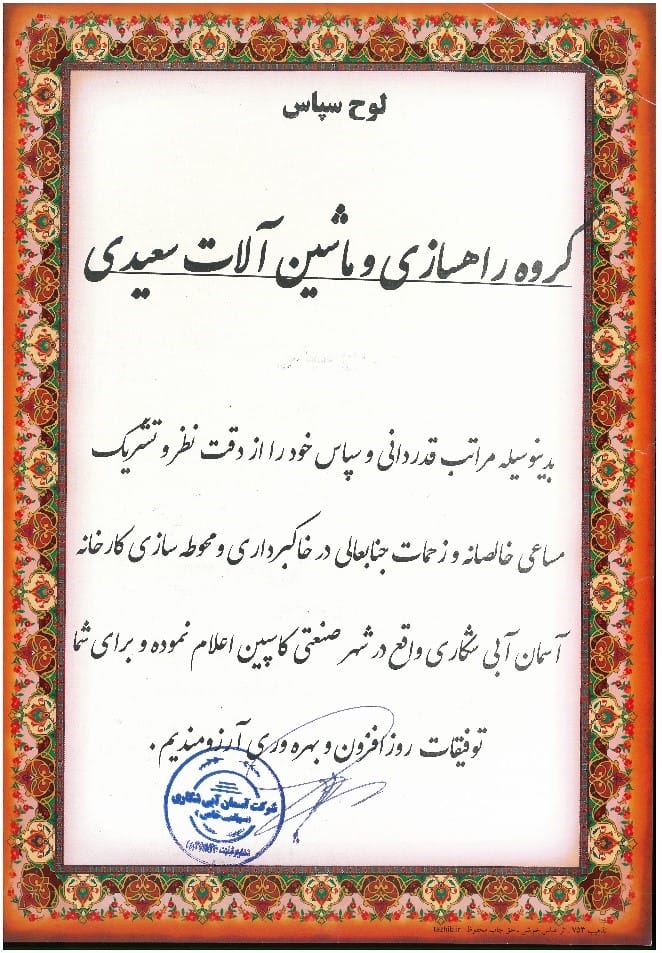 لوح سپاس
گروه راهسازی و ماشین آلات سعیدی
بدینوسیله مراتب قدردانی و سپاس خود را از دقت نظر و تشریک
مساعی خالصانه و زحمات جنابعالی در خاکبرداری و محوطه سازی کارخانه
آسمان آبی شکاری واقع در شهر صنعتی کاسپین اعلام نموده و برای شما
توفیقات روز افزون و بهره وری آرزومندیم.
شرکت آسمان آبی شکاری
(سهامی خاص)
شماره ثبت
تذهیب ۷۵۳ حق چاپ محفوظ tazhib.ir